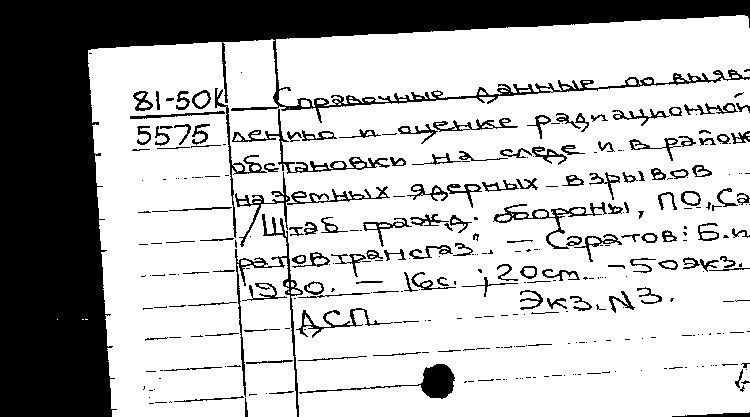 81-50К Справочные данные по выяв-
5575 лению и оценке радиационной
обстановки на следе и в районе
наземных ядерных взрывов
/Штаб гражд. обороны, ПО „Са-
ратовтрансгаз". — Саратов: Б.и.
1980. — 16с. ; 20см. — 50экз.
ДСП. Экз. N3.